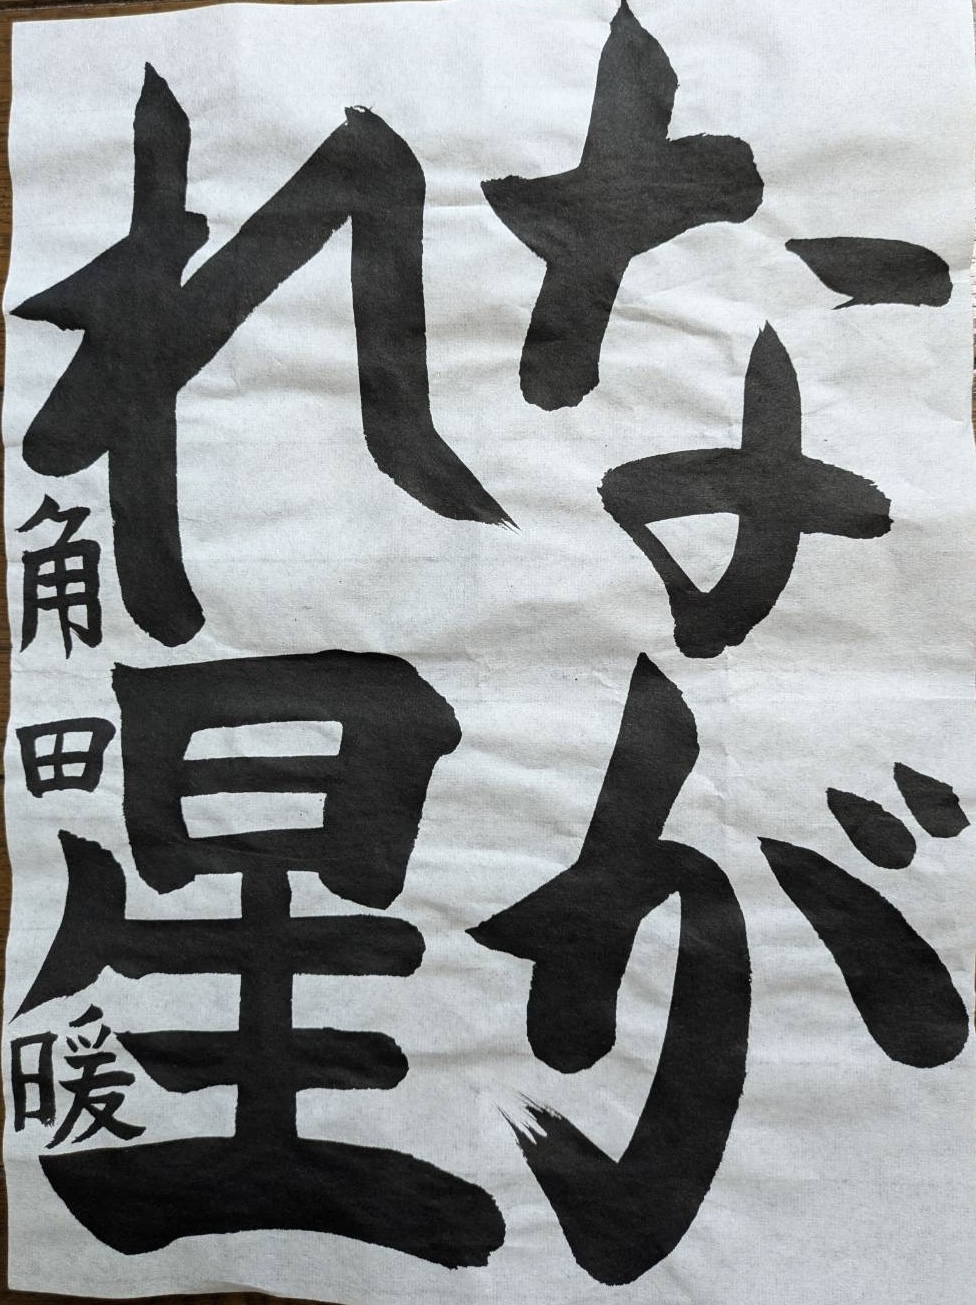 なが
れ星
角田暖